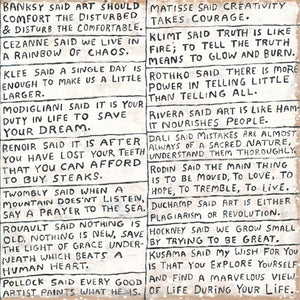 BANKSY SAID ART SHOULD
COMFORT THE DISTURBED
& DISTURB THE COMFORTABLE.
CEZANNE SAID WE LIVE IN
A RAINBOW OF CHAOS.
KLEE SAID A SINGLE DAY IS
ENOUGH TO MAKE US A LITTLE
LARGER.
MODIGLIANI SAID IT IS YOUR
DUTY IN LIFE TO SAVE
YOUR DREAM.
RENOIR SAID IT IS AFTER
YOU HAVE LOST YOUR TEETH
THAT YOU CAN AFFORD
TO BUY STEAKS.
TWOMBLY SAID WHEN A
MOUNTAIN DOESN'T LISTEN,
SAY A PRAYER TO THE SEA.
ROUAULT SAID NOTHING IS
OLD, NOTHING IS NEW, SAVE
THE LIGHT OF GRACE UNDER-
NEATH WHICH BEATS A
HUMAN HEART.
POLLOCK SAID EVERY GOOD
ARTIST PAINTS WHAT HE IS.
MATISSE SAID CREATIVITY
TAKES COURAGE.
KLIMT SAID TRUTH IS LIKE
FIRE; TO TELL THE TRUTH
MEANS TO GLOW AND BURN.
ROTHKO SAID THERE IS MORE
POWER IN TELLING LITTLE
THAN TELLING ALL.
RIVERA SAID ART IS LIKE HAM:
IT NOURISHES PEOPLE.
DALI SAID MISTAKES ARE ALMOST
ALWAYS OF A SACRED NATURE,
UNDERSTAND THEM THOROUGHLY.
RODIN SAID THE MAIN THING
IS TO BE MOVED, TO LOVE, TO
HOPE, TO TREMBLE, TO LIVE.
DUCHAMP SAID ART IS EITHER
PLAGIARISM OR REVOLUTION.
HOCKNEY SAID WE GROW SMALL
BY TRYING TO BE GREAT.
KUSAMA SAID MY WISH FOR YOU
IS THAT YOU EXPLORE YOURSELF
AND FIND A MARVELOUS VIEW
OF LIFE DURING YOUR LIFE.